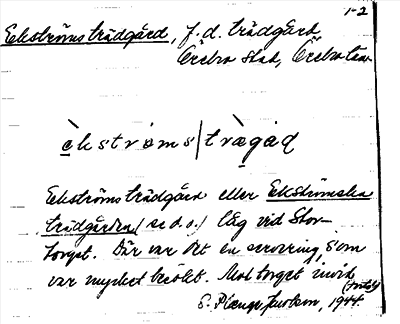 1-2
Ekströms trädgård, f.d. trädgård,
Örebro stad, Örebro län
èkstrøms|trægàḍ
Ekströms trädgård eller Ekströmska
trädgården (se d.o.) låg vid Stor-
torget. Där var det en servering, som
var mycket besökt. Mot torget
S. 1944.